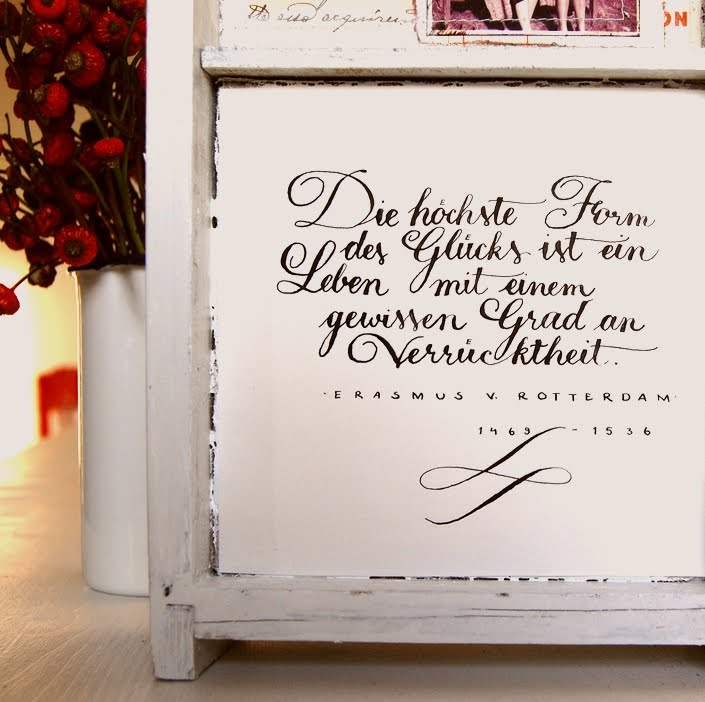 Die höchste Form
des Glücks ist ein
Leben mit einem
gewissen Grad an
Verrücktheit..
·ERASMUS V. ROTTERDAM·
1469 - 1536